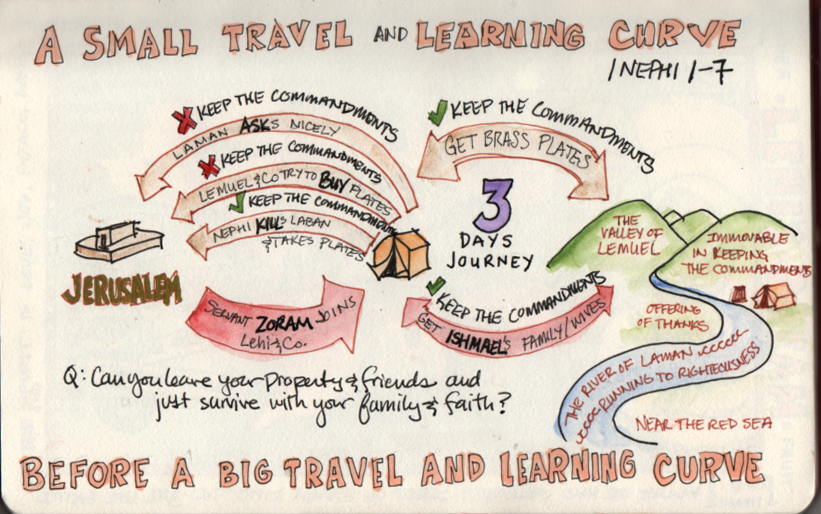 A SMALL TRAVEL AND LEARNING CURVE
1 NEPHI 1-7
KEEP THE COMMANDMENTS
LAMAN ASKS NICELY
KEEP THE COMMANDMENTS
LEMUEL & CO TRY TO BUY PLATES
KEEP THE COMMANDMENTS
NEPHI KILLS LABAN
& TAKES PLATES
JERUSALEM
SERVANT ZORAM JOINS
Lehi & Co.
KEEP THE COMMANDMENTS
GET BRASS PLATES
3
DAYS
JOURNEY
KEEP THE COMMANDMENTS
GET ISHMAEL'S FAMILY/WIVES
THE
VALLEY OF
LEMUEL
IMMOVABLE
IN KEEPING
THE COMMANDMENTS
OFFERING
OF THANKS
THE RIVER OF LAMAN
RUNNING TO RIGHTEOUSNESS
NEAR THE RED SEA
Q: Can you leave your property & friends and
just survive with your family & faith?
BEFORE A BIG TRAVEL AND LEARNING CURVE